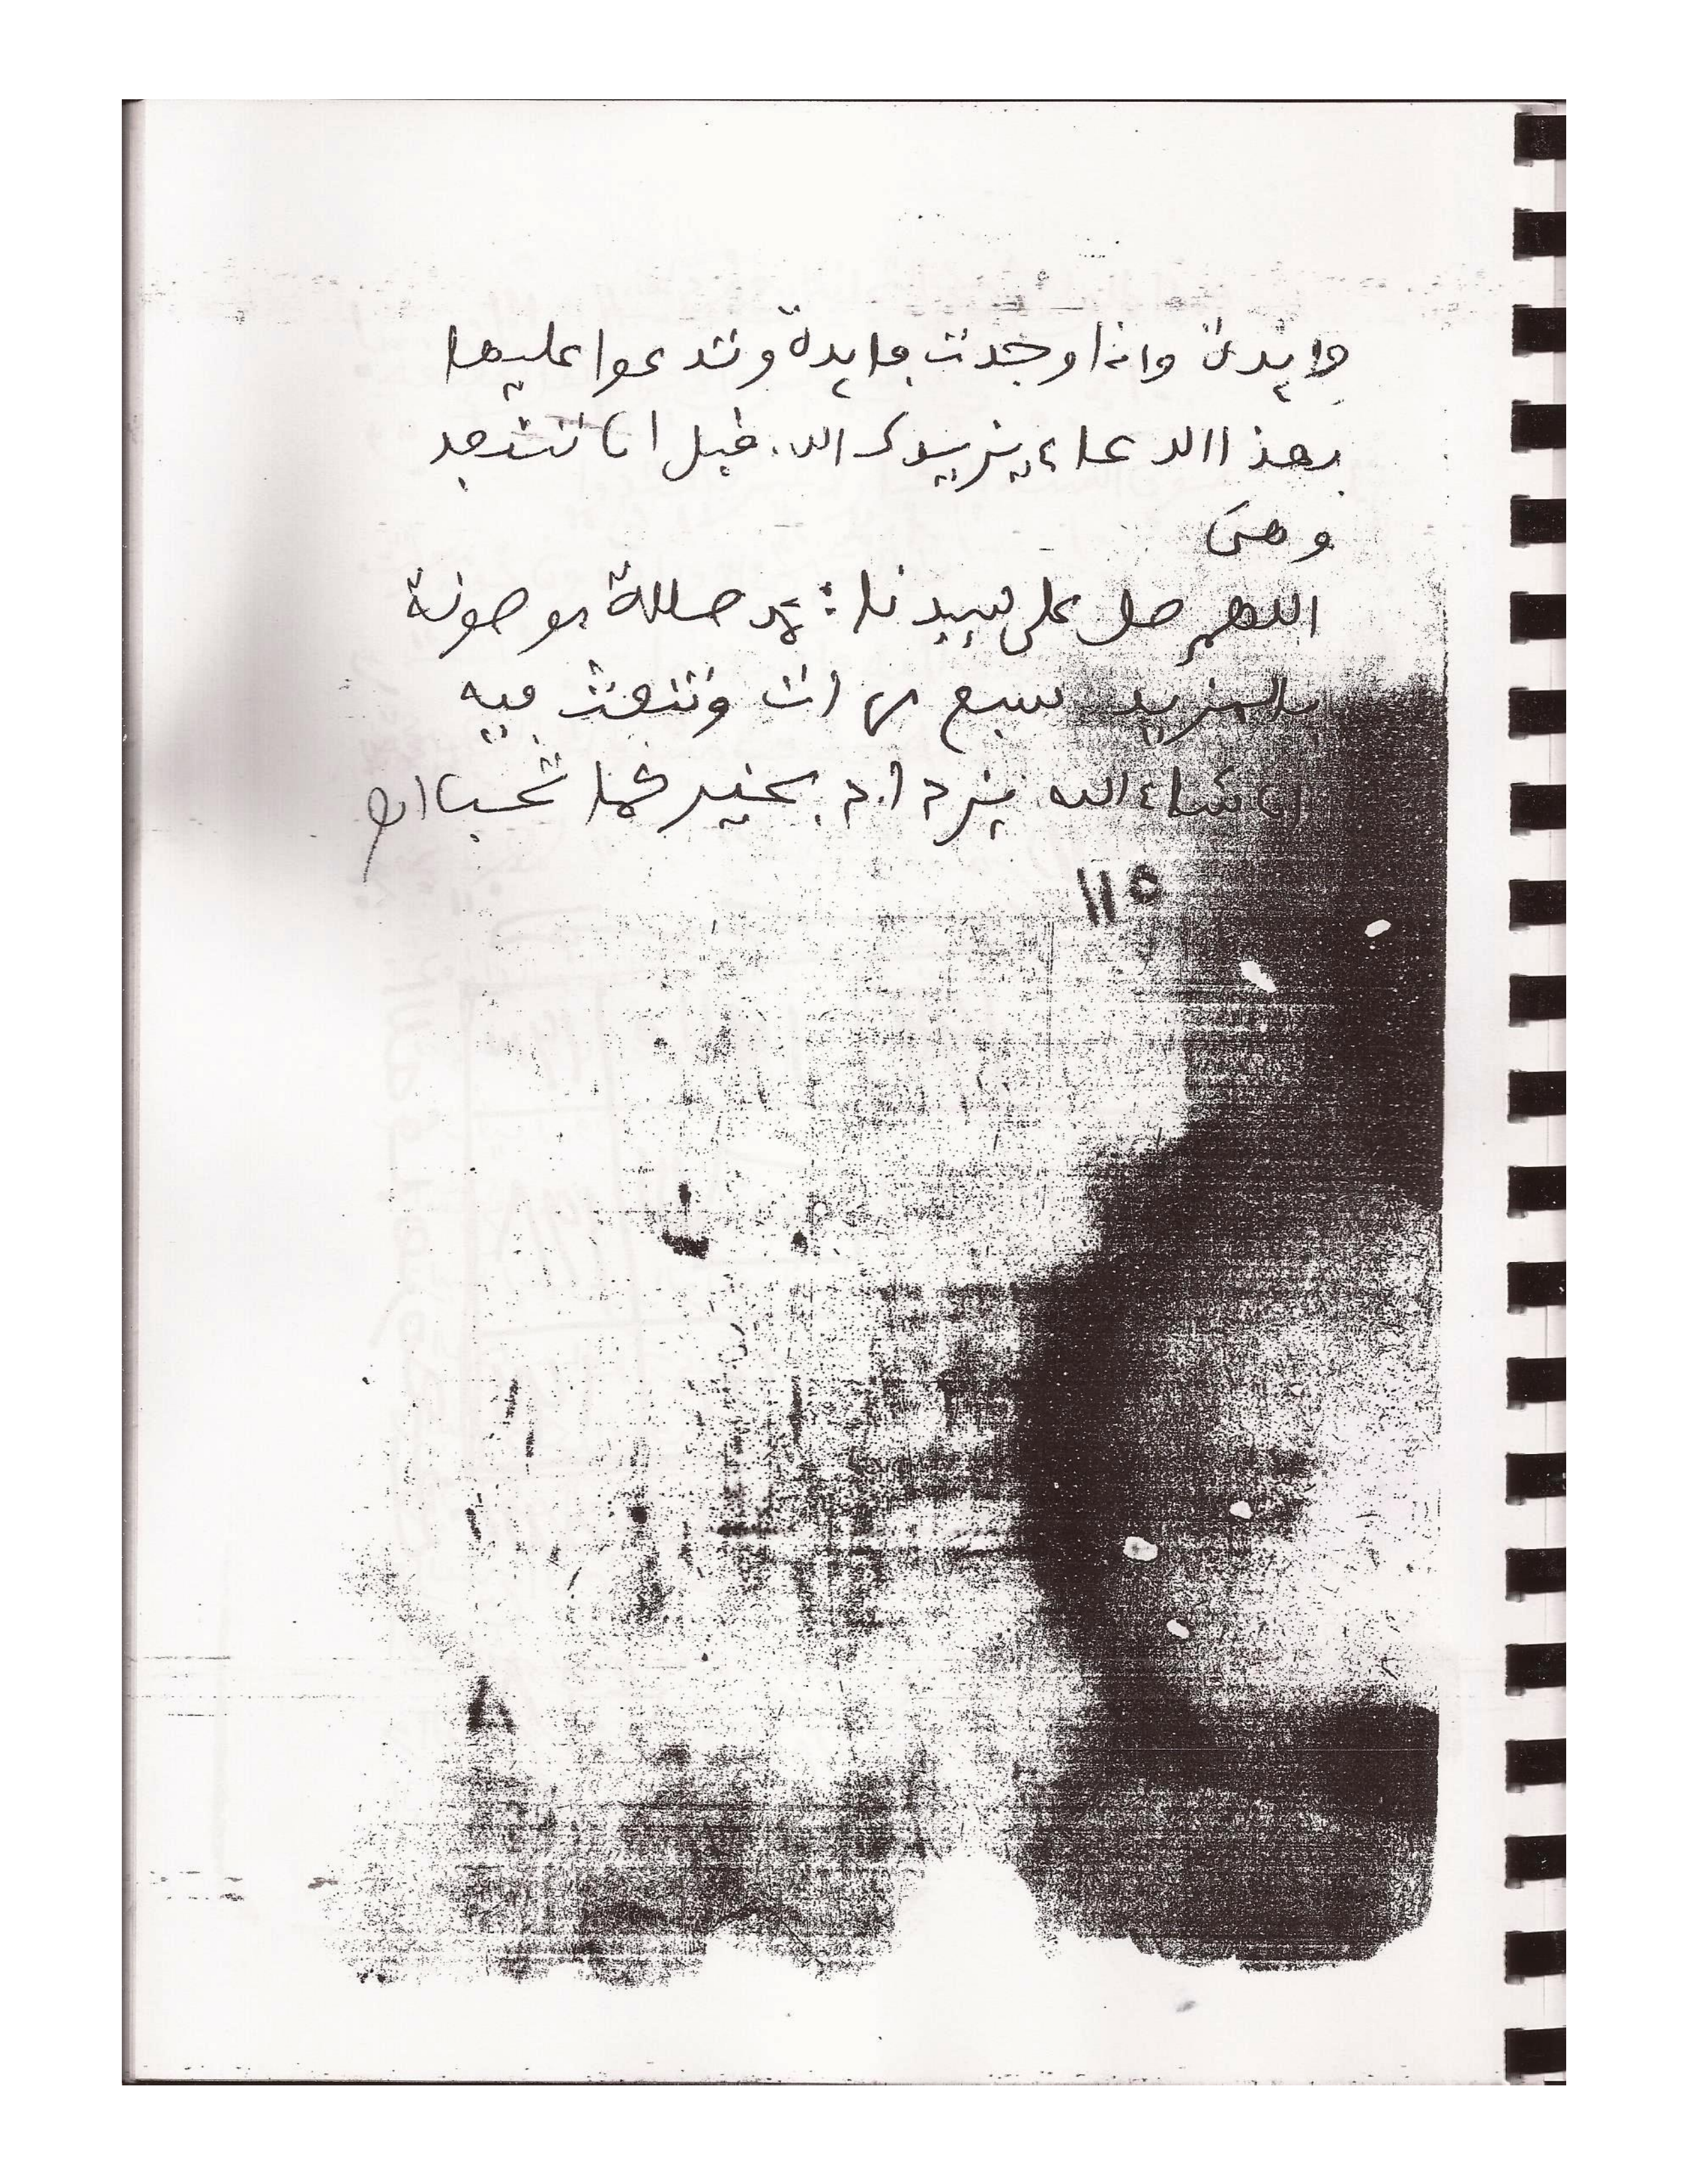 فايدة واذا وجدت فايدة وتدعوا عليها
بهذا الدعاء يزيدك الله. قبل ان تنتفعد
وهى
اللهم صل على سيدنا: محمد صلاة موصونة
بالمزيد سبع مرات وتنعث فيه
ان شاء الله بخير كما تحب اه
110